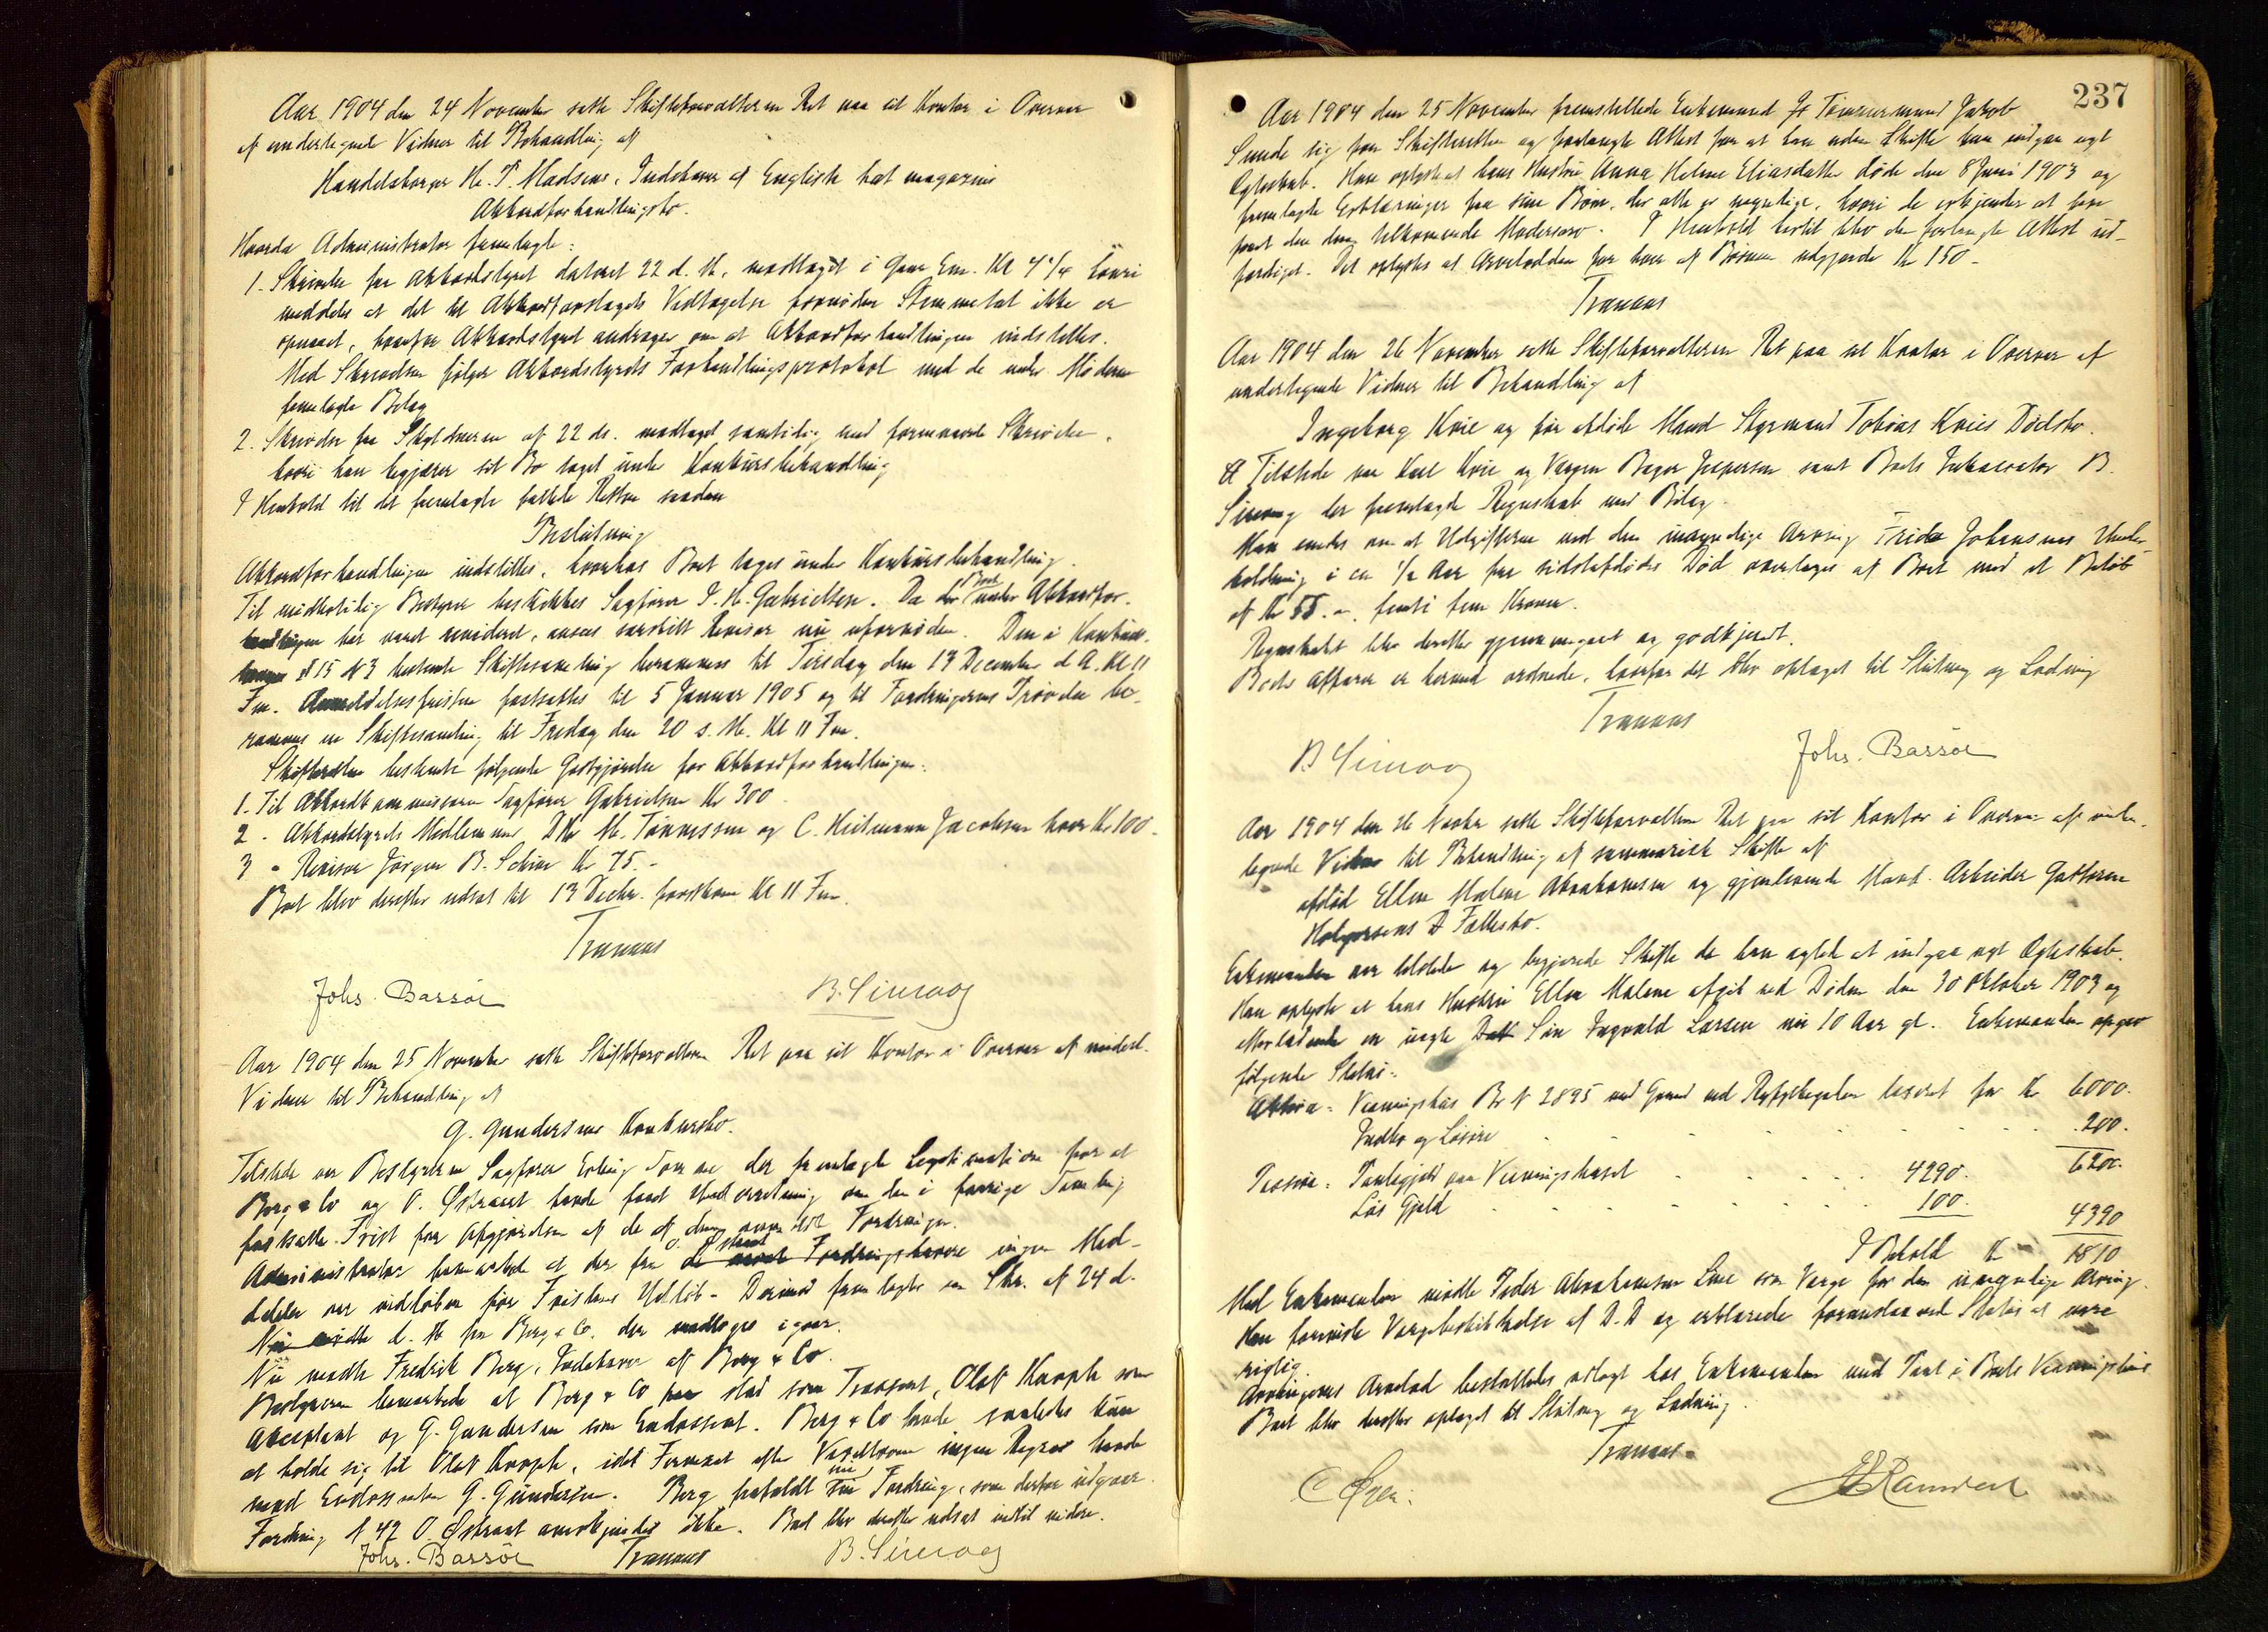 Aar 1904 den 24 November satte Skifteforvalteren Ret paa sit Kontor i Overvær
af undertegnede Vidner til Behandling af
Handelsborger M. T. Madsens, Indehaver af Englisk hat magazins
Akkordforhandlingsbo.
Hvorda Administrator fremlagte:
1. Skrivelse fra Akkordstyret dateret 22 d. M., modtaget i Gaar Em. Kl 4 1/4 hvori
meddeles at det til Akkordforslagets Vedtagelse fornødne Stemmetal ikke er
opnaaet, hvorfor Akkordstyret andrager om at Akkordforhandlingen indstilles.
Med Skrivelsen følger Akkordstyrets Forhandlingsprotokol med de under Møderne
fremlagte Bilag
2. Skrivelse fra Skyldneren af 22 ds. modtaget samtidig med formenævnte Skrivelse,
hvori han begjærer sit Bo taget under Konkursbehandling
I Henhold til det fremlagte fattede Retten saadan
Beslutning
Akkordforhandlingen indstilles, hvorhos Boet tages under Konkursbehandling.
Til midlertidig Bestyrer beskikkes Sagfører P. M. Gabrielsen. Da Boet under Akkordfor-
handlingen har været revideret, ansees særskilt Revisor nu ufornøden. Den i Konkurs-
loven § 15 N 3 bestemte Skiftesamling berammes til Tirsdag den 13 December d. A. Kl 11
Fm. Anmeldelsesfristen fastsattes til 5 Januar 1905 og til Fordringernes Prøvelse be-
rammes en Skiftesamling til Fredag den 20 s. M. Kl 11 Fm.
Skifteretten bestemte følgende Godtgjørelse for Akkordforhandlingen:
1. Til Akkordkommissæren Sagfører Gabrielsen Kr 300
2 - Akkordstyrets Medlemmer, DHr M. Tønnessen og C. Heitmann Jacobsen hver Kr. 100.-
3 - Revisor Jørgen B. Schive Kr 75.-
Boet blev derefter udsat til 13 Decbr. førstkom Kl 11 Fm.
Tranaas
Johs. Barsøe B. Sirevaag
Aar 1904 den 25 November satte Skifteforvalteren Ret paa sit Kontor i Overvær af undert.
Vidner til Behandling af
G. Gundersens Konkursbo.
Tilstede var Bestyreren Sagfører Erling der fremlagte Legitimation for at
Berg & Co og O. Østraat havde faaet Underretning om den i forrige Samling
fastsatte Frist for Afgjørelsen af de af dem anmeldte Fordringer.
Administrator bemærkede at der fra O. Østraat ingen Med-
delelse var indløben før Fristens Udløb. Derimod fremlagdes en Skr. af 24 d.
d. M fra Berg & Co. der modtoges igaar.
Nu mødte Fredrik Berg, Indehaver af Berg & Co.
Bestyreren bemærkede at Berg & Co stod som Trassent, Olaf Knoph som
Akceptant og G. Gundersen som Endossent. Berg & Co havde saaledes kun
at holde sig til Olaf Knoph, idet Firmaet efter Vexelloven ingen Regres havde
mod Endossenten G. Gundersen. Berg frafaldt nu sin Fordring, som derfor udgaar.
Fordring N 42 O. Østraat anerkjendes ikke. Boet blev derefter udsat indtil videre.
Johs. Barsøe Tranaas B. Sirevaag
237
Aar 1904 den 25 November fremstillede Enkemand Tømmermand Jakob
Sunde sig for Skifteretten og forlangte Attest for at han uden Skifte kan indgaa nyt
Ægteskab. Han oplyste at hans Hustru Anna Helene Eliasdatter døde den 8 Juni 1903 og
fremlagte Erklæringer fra sine Børn, der alle er myndige, hvori de erkjender at have
faaet den dem tilkommende Mødrenearv. I Henhold hertil blev den forlangte Attest ud-
færdiget. Det oplystes at Arvelodden for hver af Børnene udgjorde Kr 150-
Tranaas
Aar 1904 den 26 November satte Skifteforvalteren Ret paa sit Kontor i Overvær af
undertegnede Vidner til Behandling af
Ingeborg Kvie og før afdøde Mand Styrmand Tobias Kvies Dødsbo.
Tilstede var Karl Kvie og Værgen Bager Jespersen samt Boets Inkassator B.
Sirevaag der fremlagde Regnskab med Bilag.
Man enedes om at Udgifterne med den umyndige Arving Frida Johansens Under-
holdning i ca 1/2 Aar fra sidstafdødes Død overtages af Boet med et Beløb
af Kr 55.-, femti fem Kroner.
Regnskabet blev derefter gjennemgaaet og godkjendt.
Boets Affærer er hermed ordnede, hvorfor det blev optaget til Slutning og Lodning
Tranaas
B Sirevaag Johs. Barsøe
Aar 1904 den 26 Novbr satte Skifteforvalteren Ret paa sit Kontor i Overvær af under-
tegnede Vidner til Behandling af summarisk Skifte af
afdød Ellen Malene Abrahamsen og gjenlevende Mand Arbeider Guttorm
Holgersens Fællesbo.
Enkemanden var tilstede og begjærede Skifte da han agted at indgaa nyt Ægteskab.
Han oplyste at hans Hustru Ellen Malene afgik ved Døden den 30 Oktober 1903 og
efterladende en uægte Søn Ingvald Larsen nu 10 Aar gl. Enkemanden opgav
følgende Status:
Aktiva: Vaaningshus Br N 2895 med Grund ved Ryfylkegaden taxeret for Kr 6000.
Indbo og Løsøre 200.
6200.
Passiva: Pantegjæld paa Vaaningshuset 4290.
Løs Gjæld 100.
4390
I Behold Kr 1810
Med Enkemanden mødte Peder Abrahamsen som Værge for den umyndige Arving.
Han foreviste Værgebeskikkelse af D. D og erklærede foranstaaende Status at være
rigtig.
Arvingernes Arvelod besluttedes udlagt hos Enkemanden mod Pant i Boets Vaaningshus
Boet blev derefter optaget til Slutning og Lodning.
Tranaas